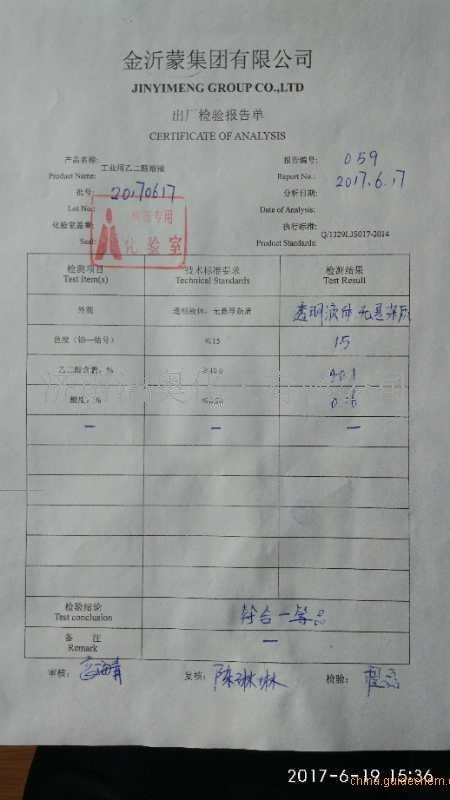 金沂蒙集团有限公司
JINYIMENG GROUP CO.,LTD
出厂检验报告单
CERTIFICATE OF ANALYSIS
产品名称: 工业用乙二醛溶液
Product Name:
报告编号: 059
Report No.:
批号: 20170617
Lot No.:
分析日期: 2017.6.17
Date of Analysis:
化验室盖章:
Seal:
专用
化验室
执行标准: Q/1329LJS017-2014
Product Standards:
检测项目 技术标准要求 检测结果
Test Item(s) Technical Standards Test Result
外观 透明液体,无悬浮杂质 透明液体 无悬浮
色度(铂—钴号) ≤15 15
乙二醛含量,% 40.1
酸度,% ≤0.20
— — —
检验结论 符合一等品
Test conclusion
备 注 —
Remark
审核: 复核: 陈琳琳 检验:
2017-6-19 15:36
china.guidechem.c